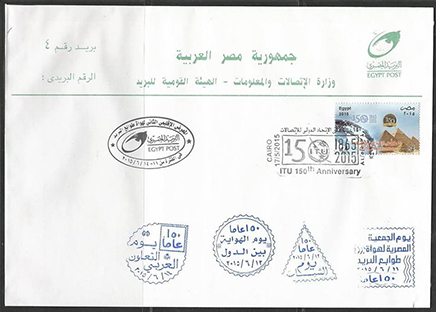 بريد رقم ٤
جمهورية مصر العربية
وزارة الإتصالات والمعلومات - الهيئة القومية للبريد
الرقم البريدى :
البريد المصرى
EGYPT POST
Egypt
2015
مصر
٢٠١٥
150
CAIRO
17/5/2015
الإتحاد الدولى للإتصالات
150
1865
2015
ITU 150th Anniversary
البريد المصرى
EGYPT POST
١٥٠ عاما
يوم
التعاون
العربي
٢٠١٥/٦/
١٥٠ عاما
يوم الهواية
بين الدول
٢٠١٥/٦/١٢
١٥٠
عاما
يوم
٢٠١٥/٦/
يوم الجمعية
المصرية لهواة
طوابع البريد
٢٠١٥/٦/١١
١٥٠ عاما